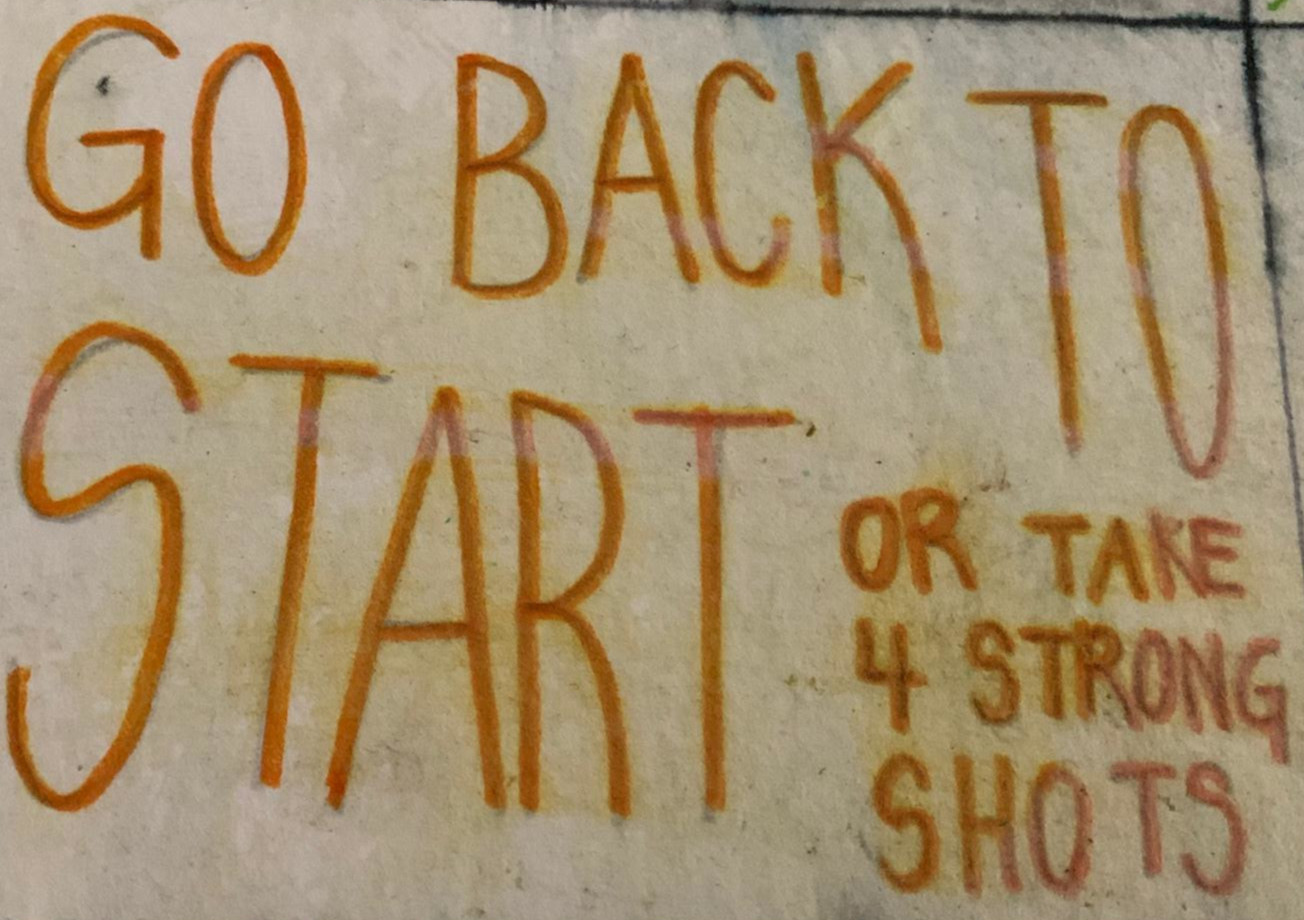 GO BACK TO
START
OR TAKE
4 STRONG
SHOTS